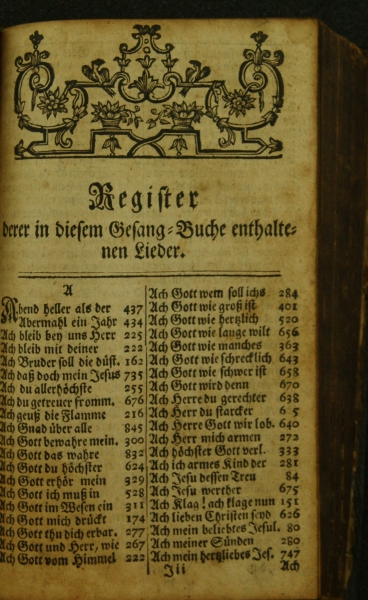 Register
derer in diesem Gesang-Buche enthalte-
nen Lieder.
A
Abend heller als der 437
Abermahl ein Jahr 434
Ach bleib bey uns Herr 225
Ach bleib mit deiner 222
Ach Bruder soll die düst. 162
Ach daß doch mein Jesus 735
Ach du allerhöchste 255
Ach du getreuer fromm. 676
Ach geuß die Flamme 216
Ach Gnad über alle 845
Ach Gott bewahre mein. 300
Ach Gott das wahre 832
Ach Gott du höchster 624
Ach Gott erhör mein 329
Ach Gott ich muß in 528
Ach Gott im Wesen ein 311
Ach Gott mich drückt 174
Ach Gott thu dich erbar. 277
Ach Gott und Herr, wie 267
Ach Gott vom Himmel 222
Ach Gott wem soll ichs 284
Ach Gott wie groß ist 401
Ach Gott wie hertzlich 520
Ach Gott wie lange wilt 656
Ach Gott wie manches 363
Ach Gott wie schrecklich 643
Ach Gott wie schwer ist 658
Ach Gott wird denn 670
Ach Herre du gerechter 638
Ach Herr du starcker 6 5
Ach Herre Gott wir lob. 640
Ach Herr mich armen 272
Ach höchster Gott verl. 333
Ach ich armes Kind der 281
Ach Jesu dessen Treu 84
Ach Jesu werther 675
Ach Klag! ach klage nun 151
Ach lieben Christen seyd 626
Ach mein beliebtes Jesul. 80
Ach meiner Sünden 280
Ach mein hertzliebes Jes. 747
Jii Ach